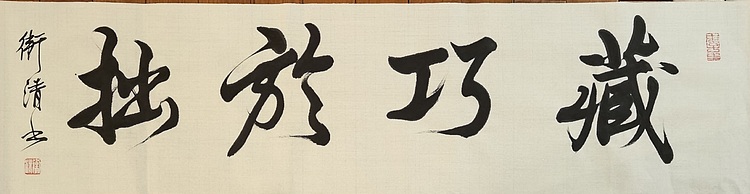 藏巧於拙
衛清书